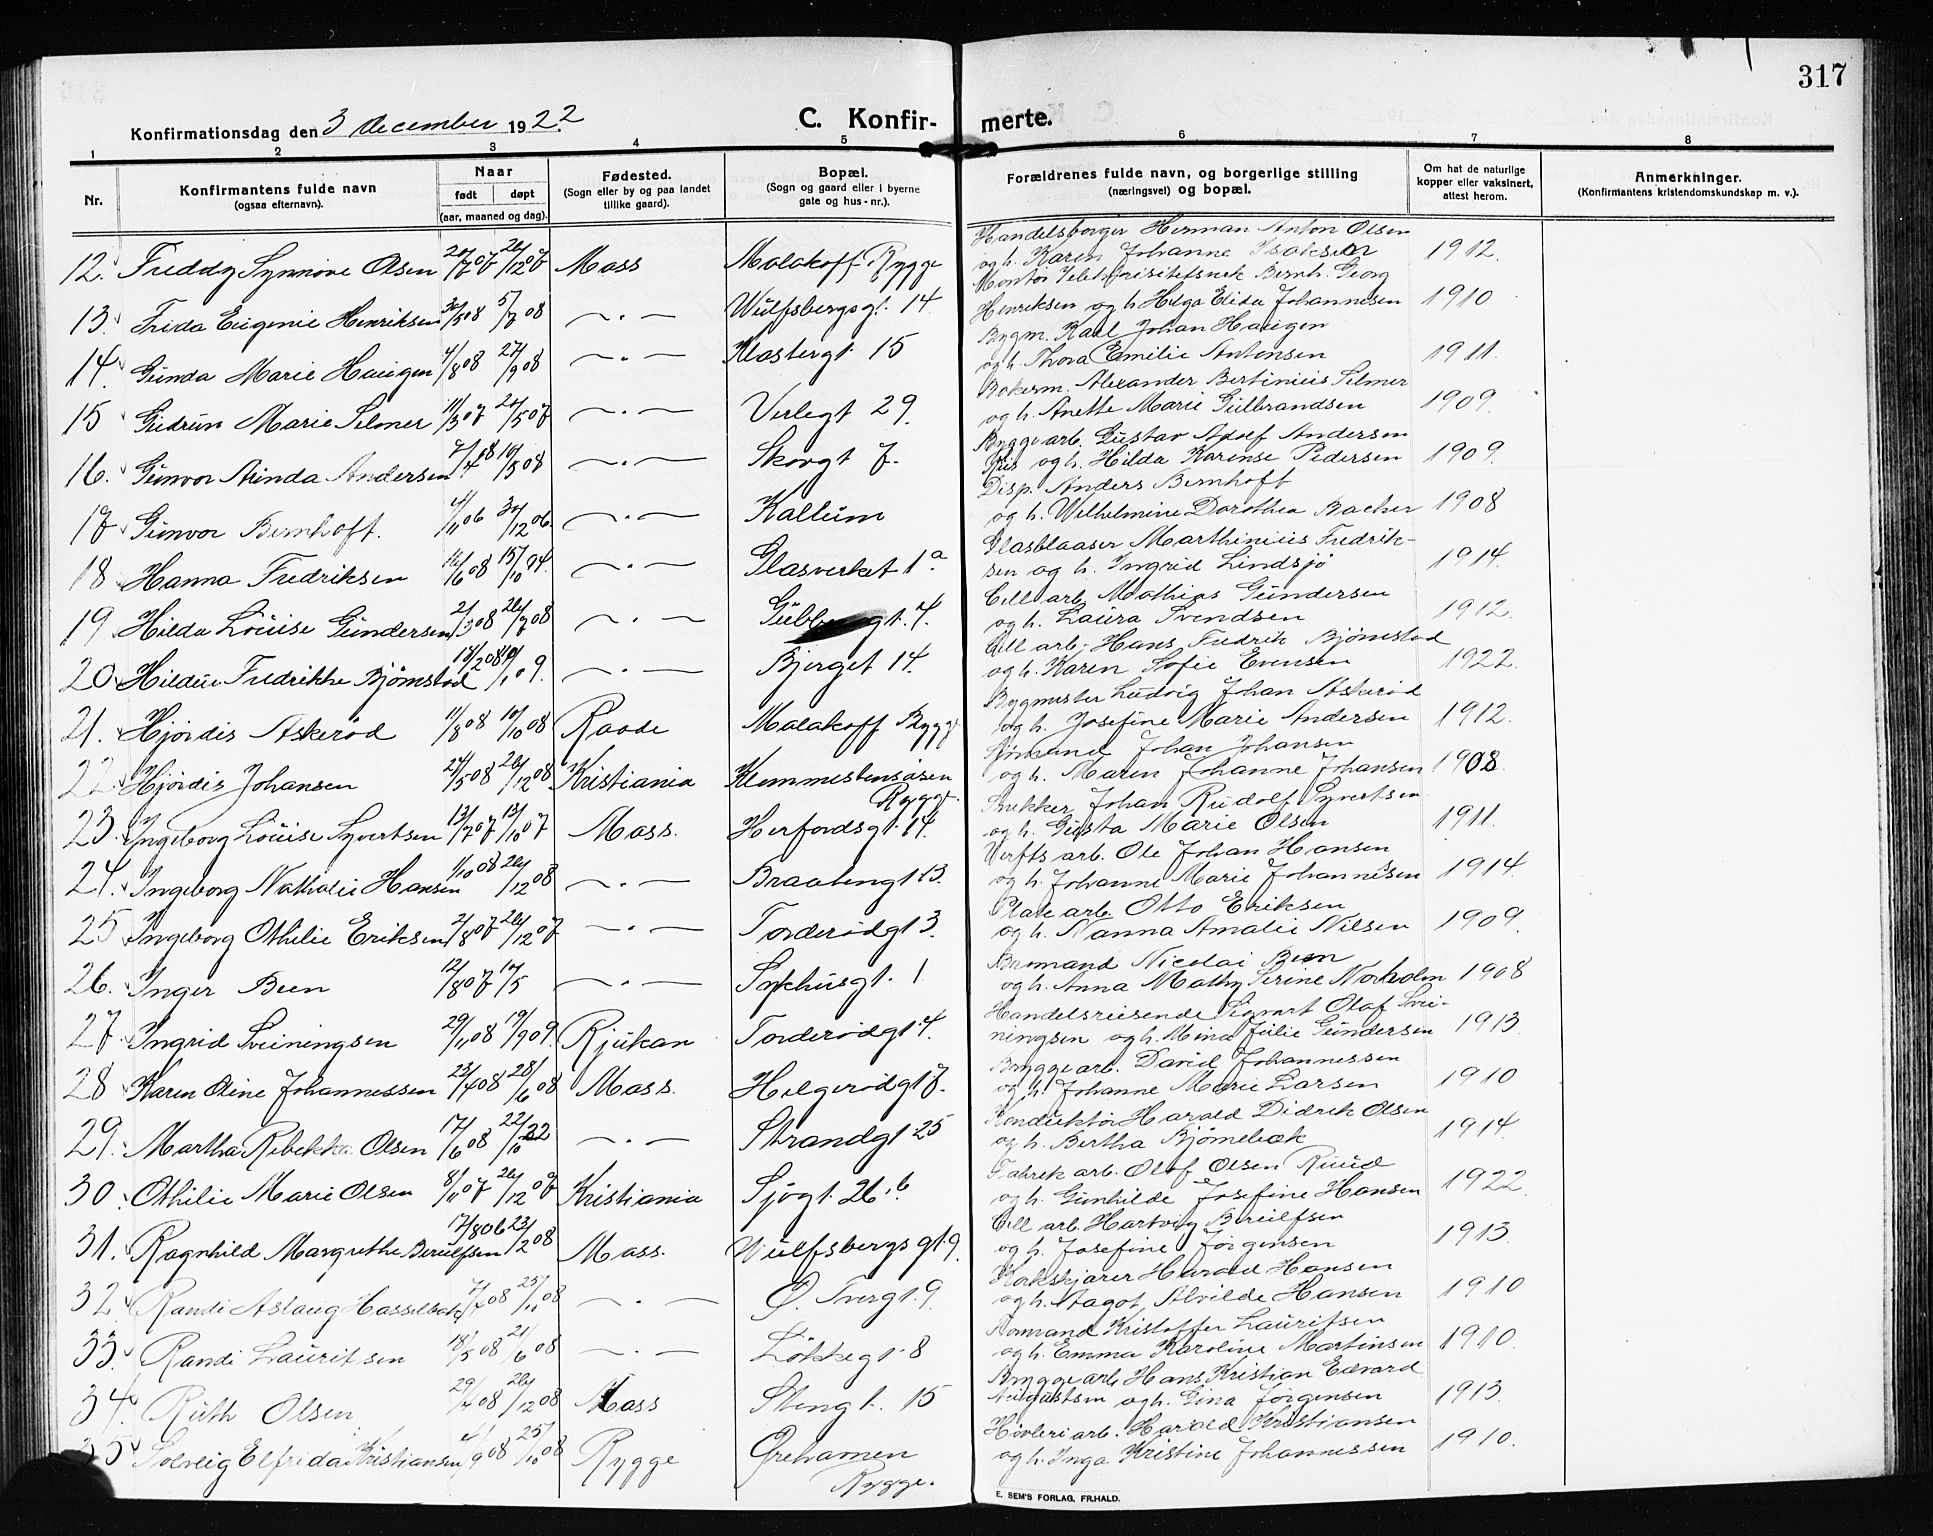 317
Konfirmationsdag den 3 december 1922.
C. Konfir- merte.
1 2 3 4 5 6 7 8
Nr.
Konfirmantens fulde navn
(ogsaa efternavn).
Naar
født døpt
(aar, maaned og dag).
Fødested.
(Sogn eller by og paa landet
tillike gaard).
Bopæl.
(Sogn og gaard eller i byerne
gate og hus-nr.).
Forældrenes fulde navn, og borgerlige stilling
(næringsvei) og bopæl.
Om hat de naturlige
kopper eller vaksinert,
attest herom.
Anmerkninger.
(Konfirmantens kristendomskundskap m. v.).
12. Freddy Synnøve Olsen 20/7 07 26/12 07 Moss Malakoff Rygge Handelsborger Herman Anton Olsen
og h. Karen Johanne Isaksen 1912.
13. Frida Eugenie Henriksen 30/5 08 5/7 08 — . — Wulfsbergsgt. 14. Montør Bernh. Georg
Henriksen og h. Helga Elida Johannesen 1910
14. Gunda Marie Haugen 4/8 08 27/9 08 — . — Klostergt. 15 Bygm. Karl Johan Haugen
og h. Thora Emilie Antonsen 1911.
15 Gudrun Marie Selmer 11/3 07 20/5 07 — . — Verlegt 29. Bakerm. Alexander Bertinius Selmer
og h. Anette Marie Gulbrandsen 1909.
16. Gunvor Arinda Andersen 7/4 08 10/5 08 — . — Skovgt 7. Bryggearb. Gustav Adolf Andersen
og h. Hilda Karense Pedersen 1909.
17 Gunvor Bernhoft. 4/11 06 30/12 06. — . — Kallum Disp. Anders Bernhoft
og h. Wilhelmine Dorothea Bacher 1908
18 Hanna Fredriksen 14/6 08 15/10 94. — . — Glasverket 1a Glasblaaser Marthinius Fredrik-
sen og h. Ingrid Lindsjø 1914.
19 Hilda Louise Gundersen 2/3 08 26/7 08 — . — gt. 4. Cell arb. Mathias Gundersen
og h. Laura Svendsen 1912.
20. Hildur Fredrikke Bjørnstad 18/2 08 10/1 09. — . — Bjerget 14. Cell arb. Hans Fredrik Bjørnstad
og h. Karen Sofie Evensen 1922.
21. Hjørdis Askerød 11/8 08 10/10 08 Raade Malakoff Rygge Bygmester Ludvig Johan Askerød
og h. Josefine Marie Andersen 1912.
22. Hjördis Johansen 24/5 08 26/12 08 Kristiania Klommestensåsen
Rygge. Sjømand Johan Johansen
og h. Maren Johanne Johansen 1908.
23. Ingeborg Louise Syvertsen 13/7 07 13/10 07 Moss. Herfordsgt. 14. Snekker Johan Rudolf Syvertsen
og h. Gusta Marie Olsen 1911.
24. Ingeborg Nathalie Hansen 1/10 08 26/12 08 — . — Braatengt 13. Verfts arb. Ole Johan Hansen
og h. Johanne Marie Johannesen 1914.
25 Ingeborg Othilie Eriksen 2/8 07 26/12 07 — . — Torderødgt 3. Plate arb. Otto Eriksen
og h. Nanna Amalie Nilsen 1909.
26. Inger Been 12/8 07 17/5 — . — Sykhusgt. 1. Nicolai Been
og h. Anna Mathy Serine Norholm 1908
27. Ingrid Sveiningsen 29/11 08 19/9 09. Rjukan Torderødgt. 4. Handelsreisende Sigvart Olaf Svei-
ningsen og h. Mina Julie Gundersen 1913.
28 Karen Oline Johannessen 23/4 08 28/6 08 Moss. Helgerødgt 7. Bryggearb. David Johannessen
og h. Johanne Marie Larsen 1910
29. Martha Rebekka Olsen 17/6 08 22/10 22 — . — Strandgt 25 Konduktør Harald Didrik Olsen
og h. Bertha Bjørnebæk 1914.
30. Othilie Marie Olsen 8/11 07 26/12 07 Kristiania Sjøgt. 26.b Fabrik arb. Olof Olsen Ruud
og h. Gunhilde Josefine Hansen 1922.
31. Ragnhild Margrethe Berulfsen 17/8 06 23/2 08 Moss. Wulfsbergsgt. 9. Cell arb. Hartvig Berulfsen
og h. Josefine Jørgensen 1913.
32. Randi Aslaug Hasselbæk 7/7 08 25/11 08 — . — Ø. Tvergt. 9. Korkskjærer Harald Hansen
og h. Aagot Alvilde Hansen 1910
33. Randi Lauritsen 18/5 08 21/6 08 — . — Løkkegt. 8 Kristoffer Lauritsen
og h. Emma Karoline Martinsen 1910.
34. Ruth Olsen 29/4 08 26/12 08 Moss Stengt. 15 Bryggearb. Hans Kristian Edvard
Augustsen og h. Gina Jørgensen 1913.
35 Solveig Elfrida Kristiansen 4/9 08 25/10 08 Rygge Ørehamen
Rygge. Høvleri arb. Harald Kristiansen
og h. Inga Kristine Johannessen 1910.
E. SEM'S FORLAG, FR.HALD.